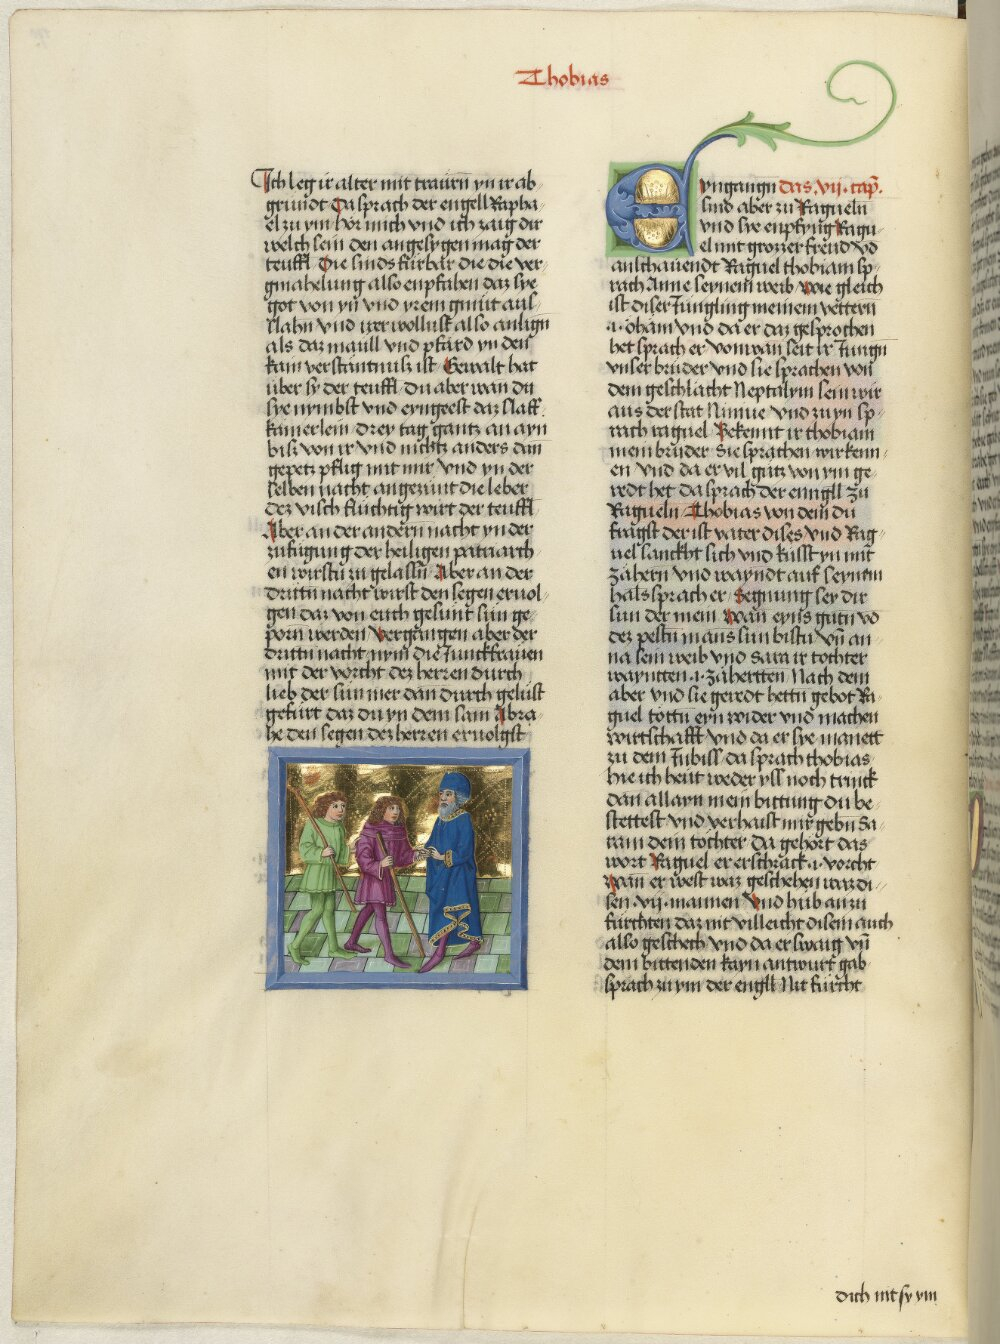 Thobias
Ich leg ir alter mit traurn yn ir ab
grundt Da sprach der engell Rapha
el zu ym hör mich vnd ich zaig dir
welch sein den angesygen mag der
teuffl Die sinds fürbar die die ver
gmahelung also enpfahen daz sye
got von yn vnd yrem gmüt aus
slahn vnd irer wollust also anlign
als daz maull vnd pfärd yn den
kain verstäntnuß ist Gewalt hat
über sy der teuffl du aber wan du
sye nymbst vnd eyngeest daz slaff
kamerlein drey tag gantz an ayn
bisz von ir vnd nichtz anders dan
gepetz pflig mit mir vnd yn der
selben nacht angezünt die leber
dez visch flüchtig wirt der teuffl
Aber an der andern nacht yn der
zufügung der heiligen patriarch
en wirstu zu gelassn Aber an der
drittn nacht wirst den segen eruol
gen daz von euch gesunt sün ge
porn werden Vergangen aber der
drittn nacht nym die Junckfrauen
mit der vorcht dez herren durch
lieb der sün mer dan durch gelüst
gefürt daz du yn dem sam Abra
he den segen dez herren eruolgst
Eyngangn das .vij. cap.
sind aber zu Ragueln
vnd sye enpfyng Ragu
el mit grozzer freud vd
anschauendt Raguel thobiam sp
rach Anne seynem weib wie gleich
ist diser Jungling meinem vettern
.i. öham vnd da er daz gesprochen
het sprach er von wan seit ir Jungn
vnser brüder vnd sie sprachen von
dem geschlächt Neptalym sein wir
aus der stat Niniue vnd zu yn sp
rach raguel Bekennt ir thobiam
mein brüder Sie sprachen wir kenn
en vnd da er vil gutz von ym ge
redt het da sprach der enngll zu
Ragueln Thobias von dem du
frägst der ist vater dises vnd Rag
uel sanckht sich vnd küsst yn mit
zähern vnd wayndt auf seynem
hals sprach er Segnung sey dir
sun der mein Wan eyns gutn vo
dez pestn mans sun bistu vn an
na sein weib vnd Sara ir tochter
wayntten .i. zähertten Nach dem
aber vnd sie geredt hettn gebot Ra
guel töttn eyn wider vnd machen
wirtschafft vnd da er sye manett
zu dem Inbiss da sprach thobias
hie ich heut weder yss noch trinck
dan allayn mein bittung du be
stettest vnd verhaist mir gebn Sa
ram dein tochter da gehört das
wort Raguel er erschrack .i. vorcht
Wan er west waz geschehen waz di
sen .vij. mannen Vnd hüb an zu
fürchten daz nit villeicht disem auch
also geschech vnd da er swaig vn
dem bittenden kayn antwurt gab
sprach zu ym der engll Nit fürcht
dich nit sy ym